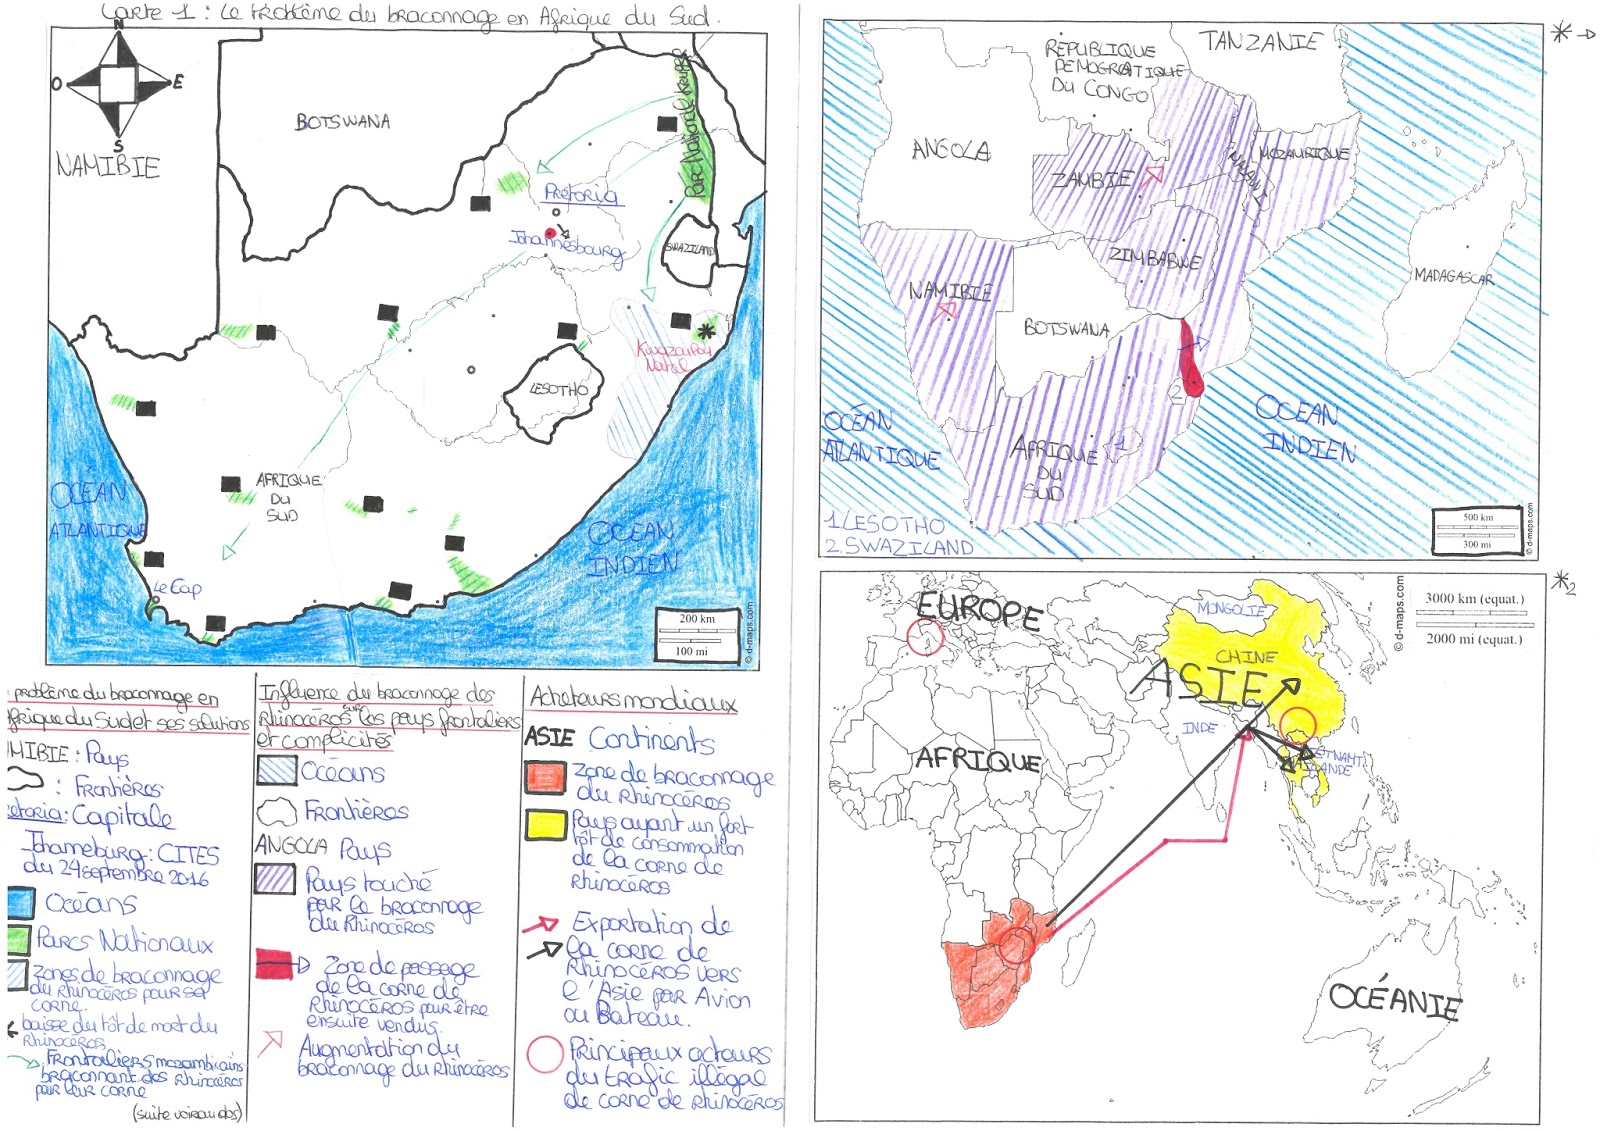 Carte 1 : Le Problème du braconnage en Afrique du Sud.
N
O
E
S
NAMIBIE
BOTSWANA
Parc National Kruger
Pretoria
Johannesbourg
SWAZILAND
LESOTHO
AFRIQUE
DU
SUD
OCÉAN
ATLANTIQUE
OCÉAN
INDIEN
Le Cap
200 km
100 mi
© d-maps.com
problème du braconnage en
frique du Sud et ses solutions
MIBIE : Pays
: Frontières
etoria : Capitale
Johameburg : CITES
du 24 septembre 2016
Océans
Parcs Nationaux
Zones de braconnage
du Rhinocéros pour sa
corne.
baisse du tôt de mort du
Rhinocéros
Frontaliers mozambicains
braconnant des Rhinocéros
pour leur corne
(suite voir au dos)
Influence du braconnage des
Rhinocéros sur les pays frontaliers
et complicités
Océans
Frontières
ANGOLA Pays
Pays touché
par le braconnage
du Rhinocéros
Zone de passage
de la corne de
Rhinocéros pour être
ensuite vendus.
Augmentation du
braconnage du Rhinocéros
Acheteurs mondiaux
ASIE Continents
Zone de braconnage
du Rhinocéros
Pays ayant un fort
tôt de consommation
de la corne de
rhinocéros
Exportation de
la corne de
Rhinocéros vers
l'Asie par Avion
ou Bateau.
Principaux acteurs
du trafic illégal
de corne de rhinocéros
RÉPUBLIQUE
DÉMOCRATIQUE
DU CONGO
TANZANIE
ANGOLA
ZAMBIE
MALAWI
MOZAMBIQUE
ZIMBABWE
NAMIBIE
BOTSWANA
MADAGASCAR
AFRIQUE
DU
SUD
1
2
OCÉAN
ATLANTIQUE
OCÉAN
INDIEN
1. LESOTHO
2. SWAZILAND
500 km
300 mi
© d-maps.com
EUROPE
MONGOLIE
CHINE
ASIE
INDE
AFRIQUE
OCÉANIE
3000 km (equat.)
2000 mi (equat.)
© d-maps.com
2